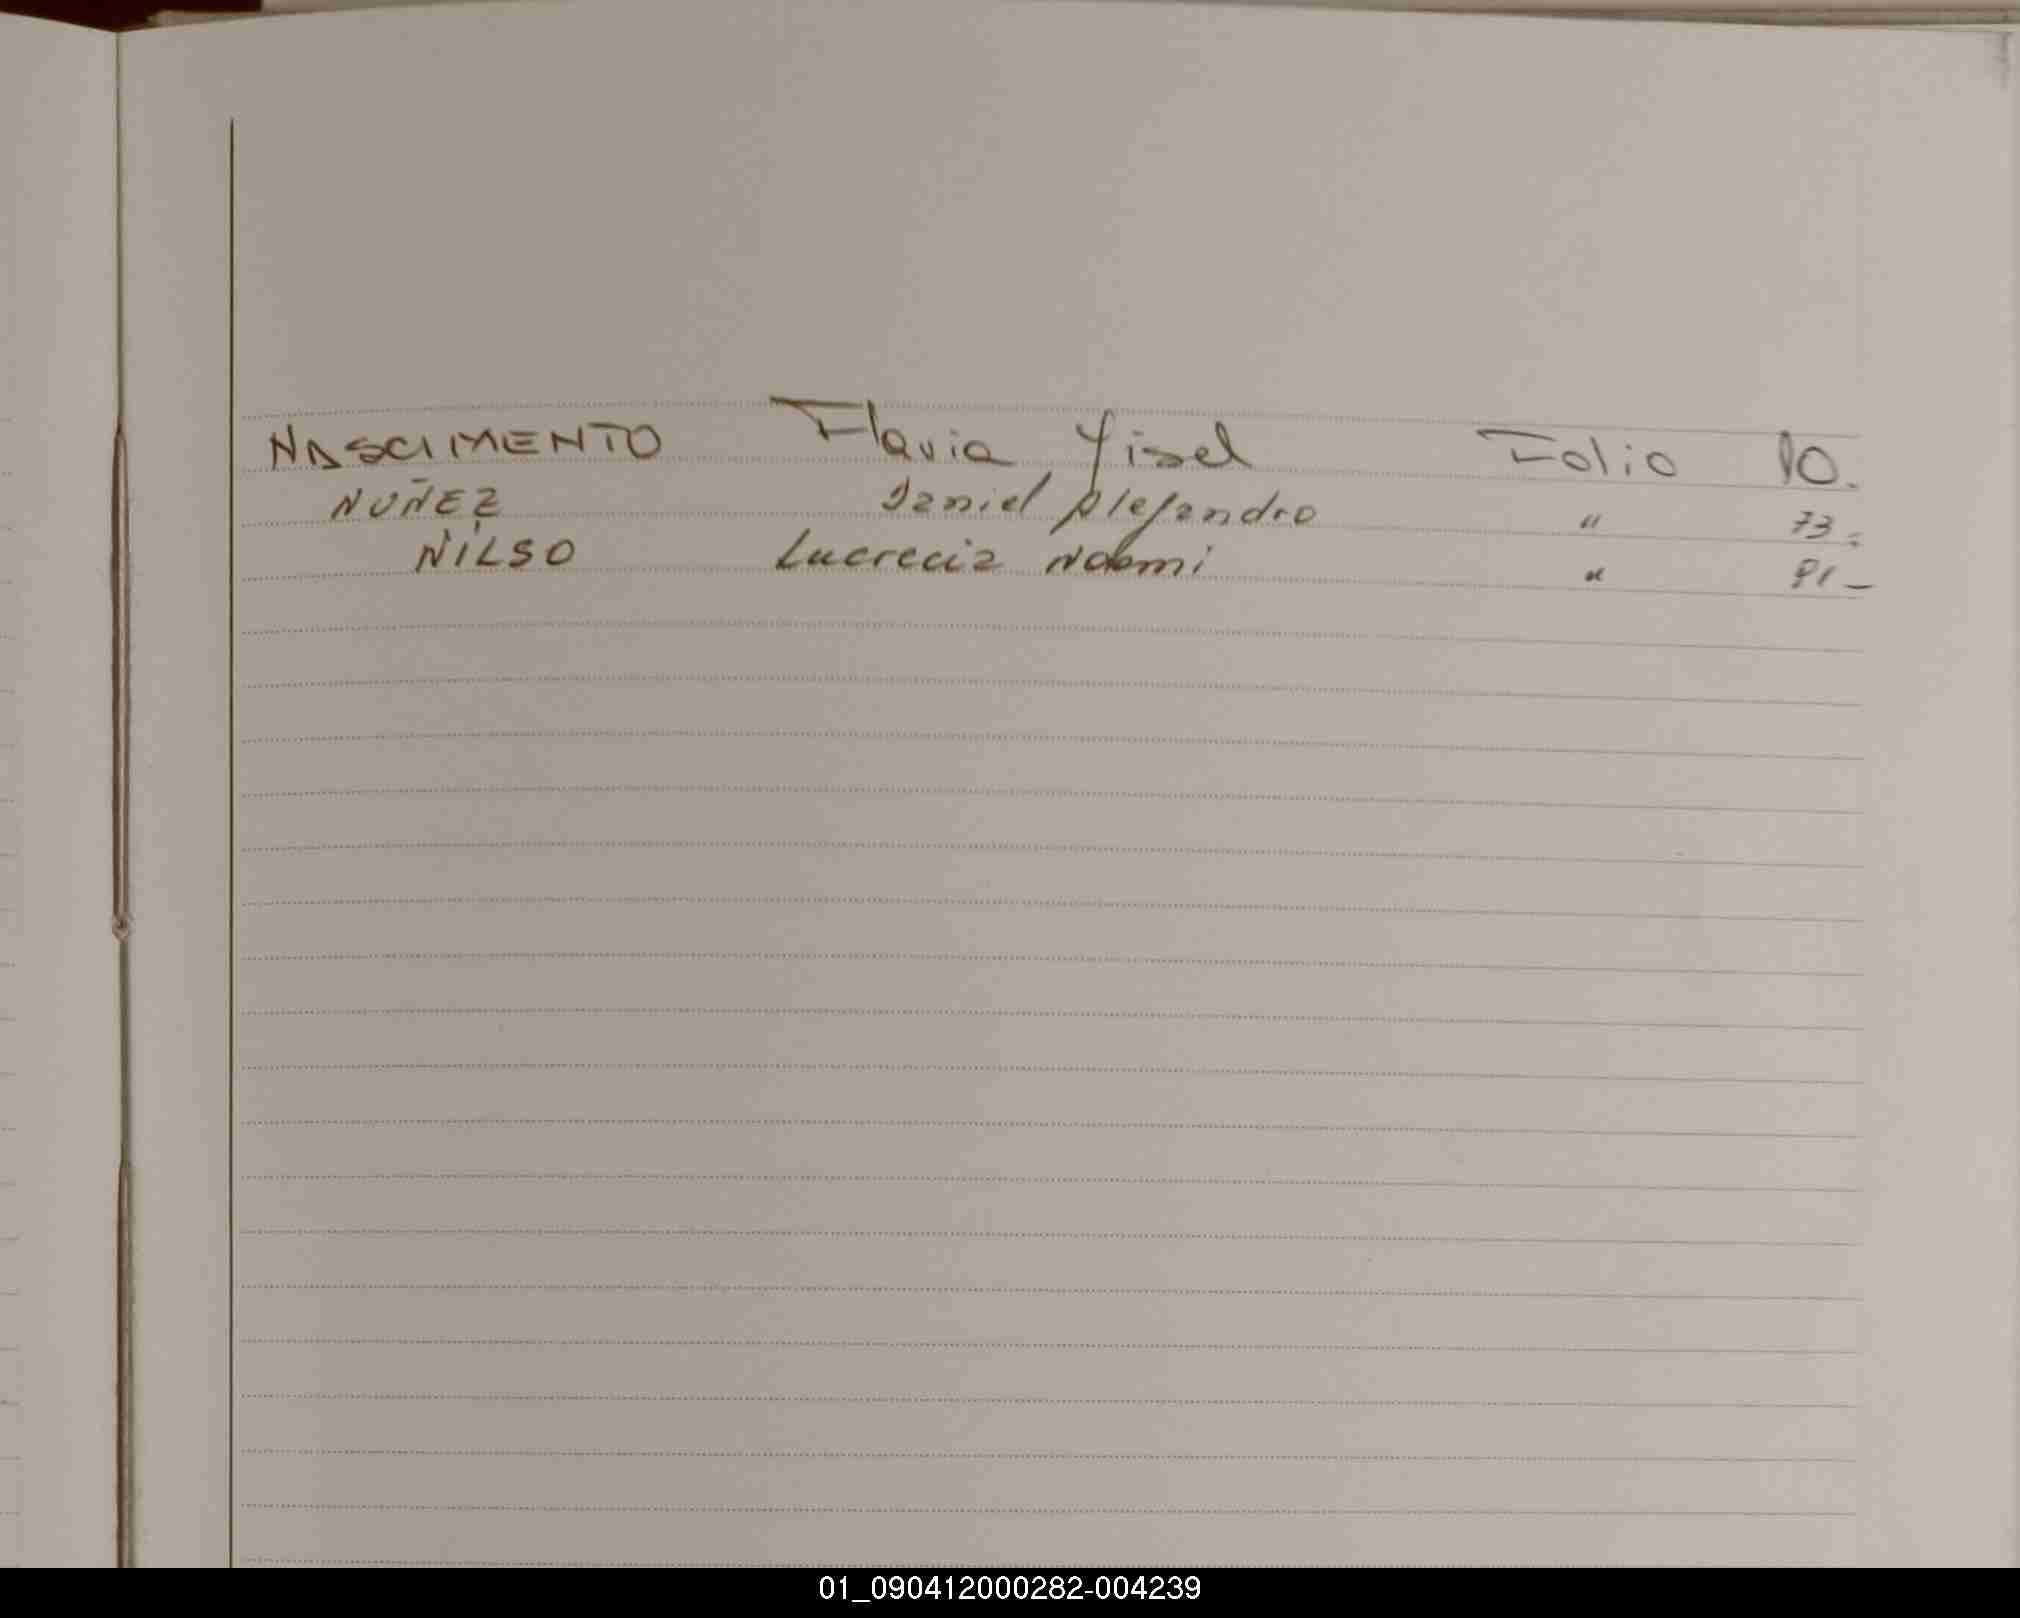 NASCIMENTO Flavia Yisel Folio 10.
NUÑEZ Daniel Alejandro " 73 -
NILSO Lucrecia Noemi " 81 -
01_090412000282-004239